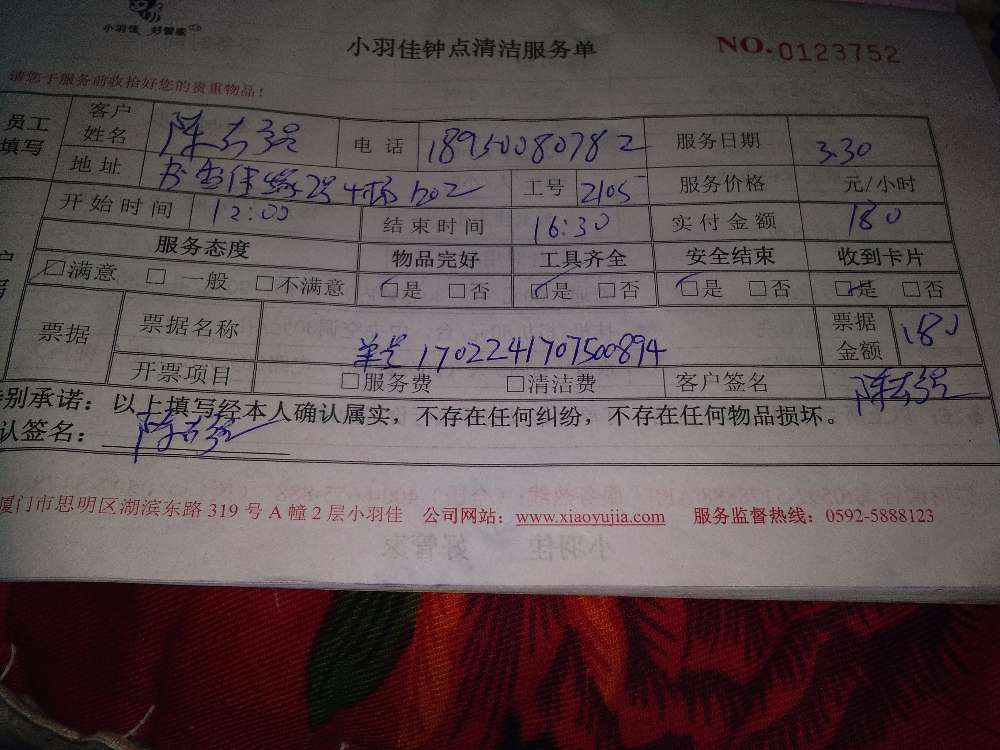 小羽佳 好管家
小羽佳钟点清洁服务单
NO.0123752
请您于服务前收拾好您的贵重物品！
员工填写
客户姓名 陈志强 电话 18950080782 服务日期 3.30
地址 2号 1202 工号 2105 服务价格 元/小时
开始时间 12:00 结束时间 16:30 实付金额 180
服务态度 物品完好 工具齐全 安全结束 收到卡片
☑满意 □一般 □不满意 ☑是 □否 ☑是 □否 ☑是 □否 ☑是 □否
票据 票据名称 单号 1702241707500894 票据金额 180
开票项目 □服务费 □清洁费 客户签名 陈志强
别承诺：以上填写经本人确认属实，不存在任何纠纷，不存在任何物品损坏。
认签名： 陈志强
厦门市思明区湖滨东路 319 号 A 幢 2 层小羽佳 公司网站：www.xiaoyujia.com 服务监督热线：0592-5888123